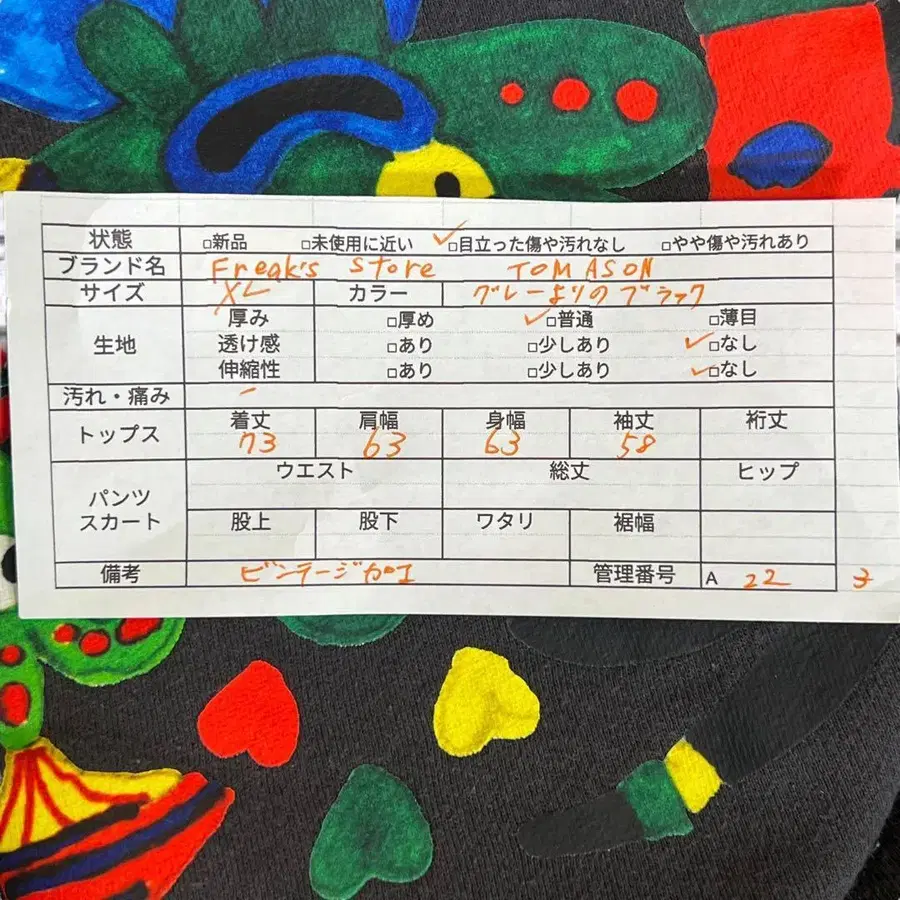 状態 □新品 □未使用に近い ✓□目立った傷や汚れなし □やや傷や汚れあり
ブランド名 Freak's Store TOMASON
サイズ XL カラー グレーよりのブラック
生地 厚み □厚め ✓□普通 □薄目
透け感 □あり □少しあり ✓□なし
伸縮性 □あり □少しあり ✓□なし
汚れ・痛み -
トップス 着丈 肩幅 身幅 袖丈 裄丈
73 63 63 58
パンツ スカート ウエスト 総丈 ヒップ
股上 股下 ワタリ 裾幅
備考 ビンテージ加工 管理番号 A 22 3